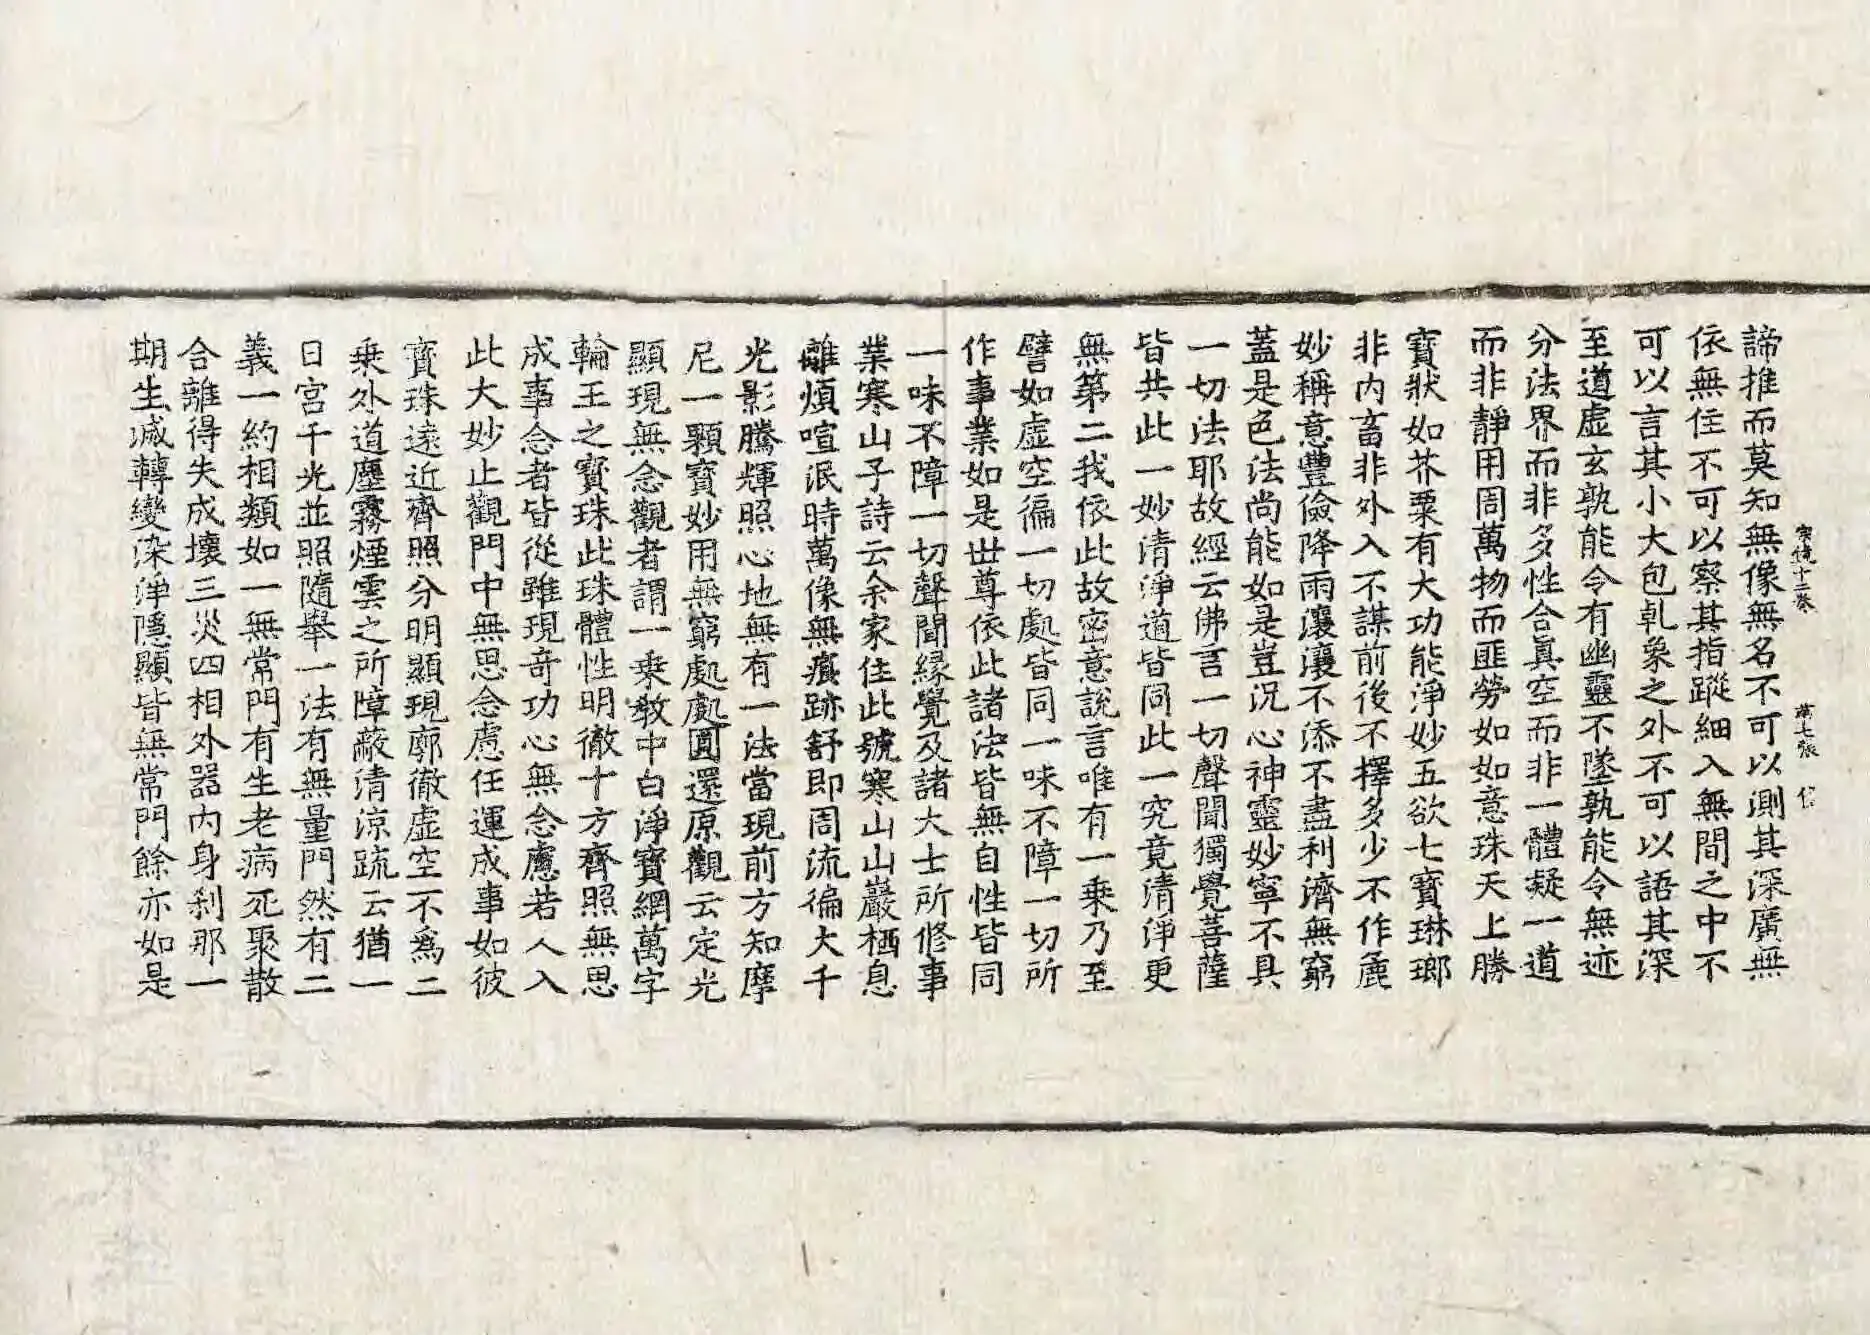 宗鏡十三卷 第七張 信
諦推而莫知無像無名不可以測其深廣無
依無住不可以察其指蹤細入無間之中不
可以言其小大包乹象之外不可以語其深
至道虛玄孰能令有幽靈不墜孰能令無迹
分法界而非多性合真空而非一體凝一道
而非靜用周萬物而匪勞如如意珠天上勝
寶狀如芥粟有大功能淨妙五欲七寶琳瑯
非內畜非外入不謀前後不擇多少不作麁
妙稱意豐儉降雨瀼瀼不添不盡利濟無窮
蓋是色法尚能如是豈況心神靈妙寧不具
一切法耶故經云佛言一切聲聞獨覺菩薩
皆共此一妙清淨道皆同此一究竟清淨更
無第二我依此故密意說言唯有一乘乃至
譬如虛空徧一切處皆同一味不障一切所
作事業如是世尊依此諸法皆無自性皆同
一味不障一切聲聞緣覺及諸大士所修事
業寒山子詩云余家住此號寒山山巖栖息
離煩喧泯時萬像無痕跡舒即周流徧大千
光影騰輝照心地無有一法當現前方知摩
尼一顆寶妙用無窮處處圓還原觀云定光
顯現無念觀者謂一乘教中白淨寶網萬字
輪王之寶珠此珠體性明徹十方齊照無思
成事念者皆從雖現奇功心無念慮若人入
此大妙止觀門中無思念慮任運成事如彼
寶珠遠近齊照分明顯現廓徹虛空不爲二
乘外道塵霧煙雲之所障蔽清涼疏云猶一
日宮千光並照隨舉一法有無量門然有二
義一約相類如一無常門有生老病死聚散
合離得失成壞三災四相外器內身刹那一
期生滅轉變染淨隱顯皆無常門餘亦如是